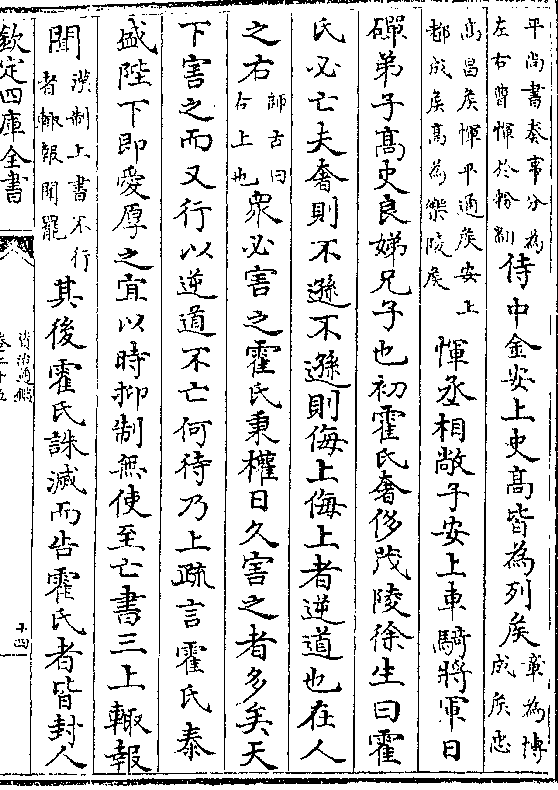 平尚書奏事分為
左右曹惲於粉創
侍中金安上史高皆為列矦
章為博
成矦忠
高昌矦惲平通矦安上
都成矦高為樂陵矦
惲丞相敞子安上車騎將軍日
磾弟子高史良娣兄子也初霍氏奢侈茂陵徐生曰霍
氏必亡夫奢則不遜不遜則侮上侮上者逆道也在人
之右
師古曰
右上也
衆必害之霍氏秉權日久害之者多矣天
下害之而又行以逆道不亡何待乃上疏言霍氏泰
盛陛下即愛厚之宜以時抑制無使至亡書三上輙報
聞
漢制上書不行
者輙報聞罷
其後霍氏誅滅而告霍氏者皆封人
欽定四庫全書
資治通鑑
卷二十五
十四